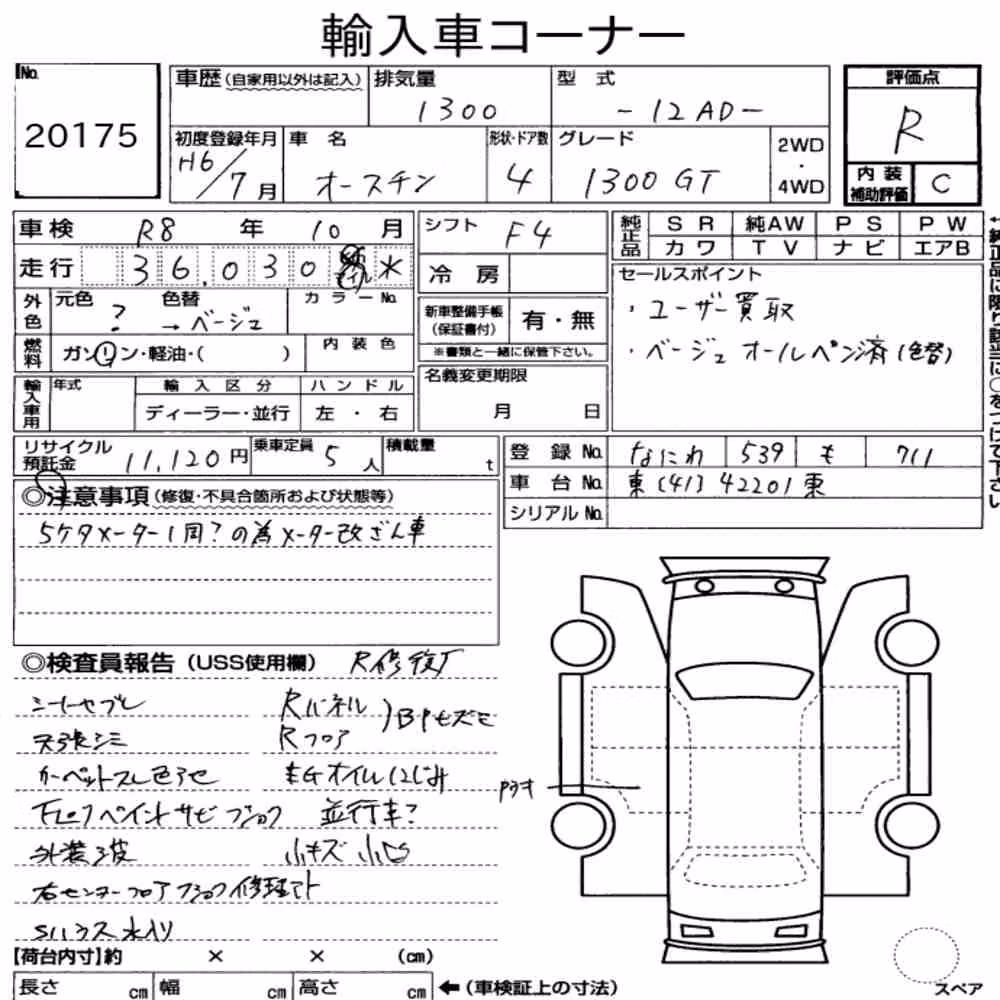 輸入車コーナー
No.
20175
車歴(自家用以外は記入)
排気量
1300
型 式
-12AD-
評価点
R
初度登録年月
H6/7月
車 名
オースチン
形状・ドア数
4
グレード
1300 GT
2WD
・
4WD
内 装
補助評価
C
車検 R8 年 10 月
シフト F4
純正品
SR 純AW PS PW
カワ TV ナビ エアB
走行 36,030 マイル *
冷 房
セールスポイント
・ユーザー買取
・ベージュオールペン済(色替)
外色
元色 ?
色替 → ベージュ
カラーNo.
新車整備手帳
(保証書付)
有・無
※書類と一緒に保管下さい。
燃料
ガソリン・軽油・( )
内装色
名義変更期限
月 日
輸入車用
年式
輸入区分
ディーラー・並行
ハンドル
左・右
←純正品に限り該当に○をつけて下さい
リサイクル
預託金 11,120円
乗車定員 5人
積載量 t
登 録 No. なにわ 539 も 711
車 台 No. 東(41)42201東
シリアル No.
◎注意事項(修復・不具合箇所および状態等)
5ケタメーター1周?の為メーター改ざん車
◎検査員報告(USS使用欄) R修復有
シートヤブレ Rパネル
天張シミ Rフロア
カーペットスレ色アセ EGオイルにじみ
下回りペイントサビ 並行車?
外装波 小キズ 小凹
右センターフロア 修理アト
Sハウス水入り
内オオ
【荷台内寸】約 × × (cm)
長さ cm 幅 cm 高さ cm ←(車検証上の寸法)
スペア